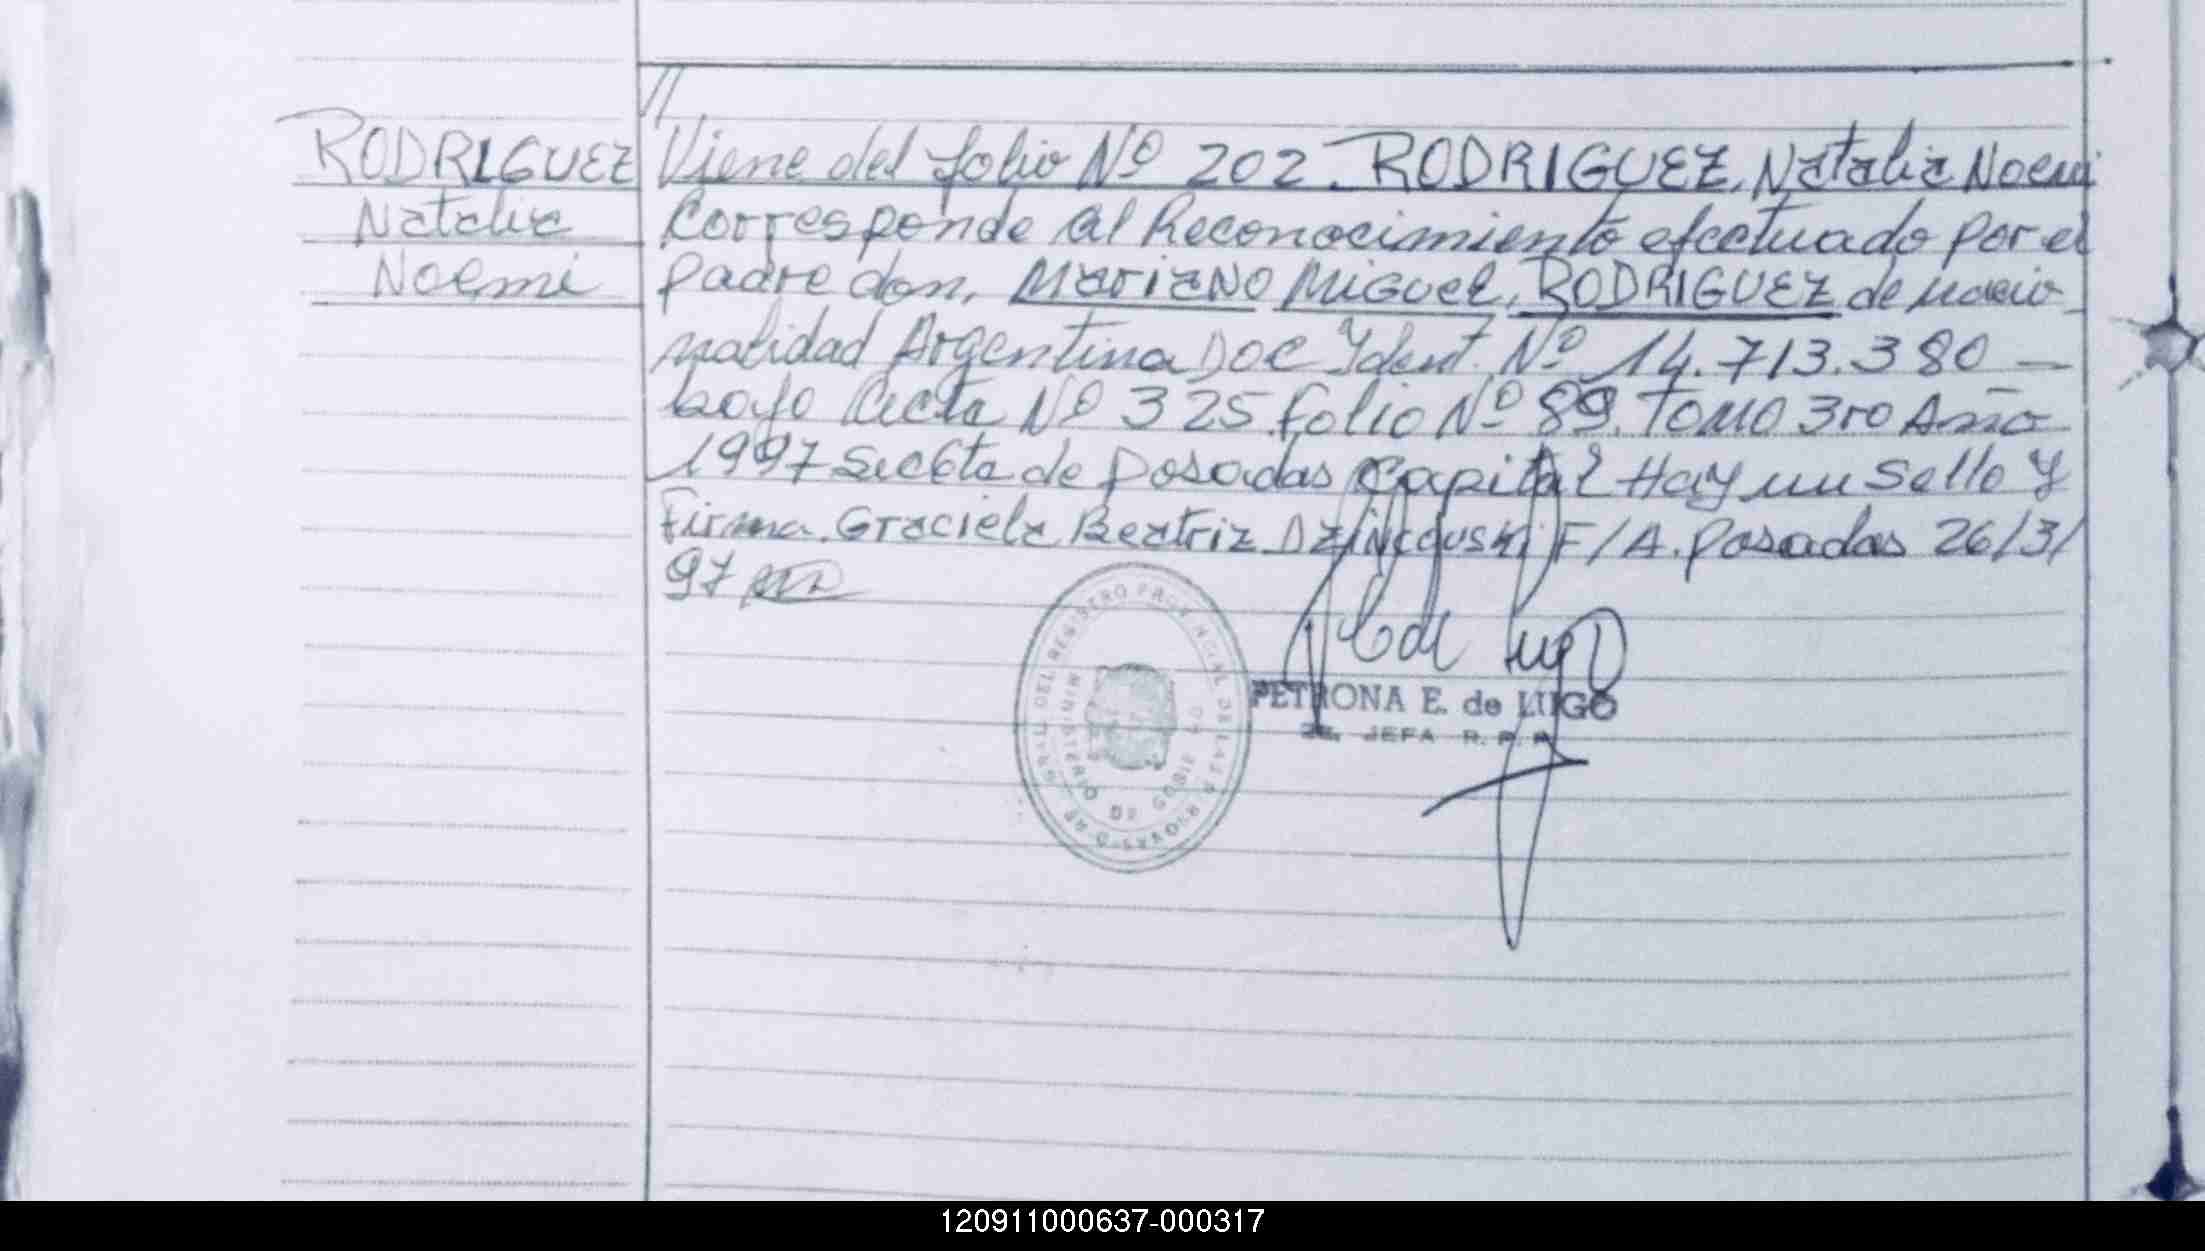 RODRIGUEZ
Natalia
Noemi
//
Viene del folio Nº 202. RODRIGUEZ, Natalia Noemi
Corresponde al Reconocimiento efectuado por el
padre don, Mariano Miguel, RODRIGUEZ de nacio
nalidad Argentina Doc Ydent. Nº 14.713.380 —
bajo Acta Nº 325 folio Nº 89. Tomo 3ro Año
1997 de Posadas Capital Hay un Sello y
Firma. Graciela Beatriz F/A. Posadas 26/3/
97
PETRONA E. de LUGO
JEFA R. P.
MINISTERIO DE
120911000637-000317